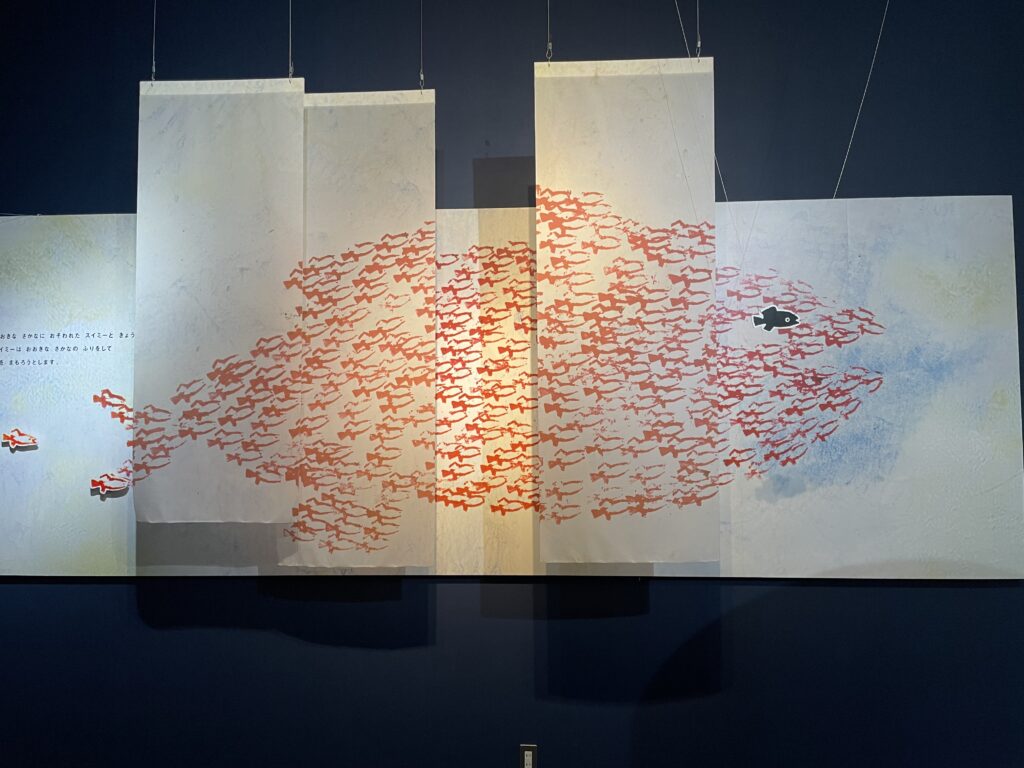 おきな さかなに おそわれた スイミーと きょう
イミーは おおきな さかなの ふりをして
を まもろうとします。